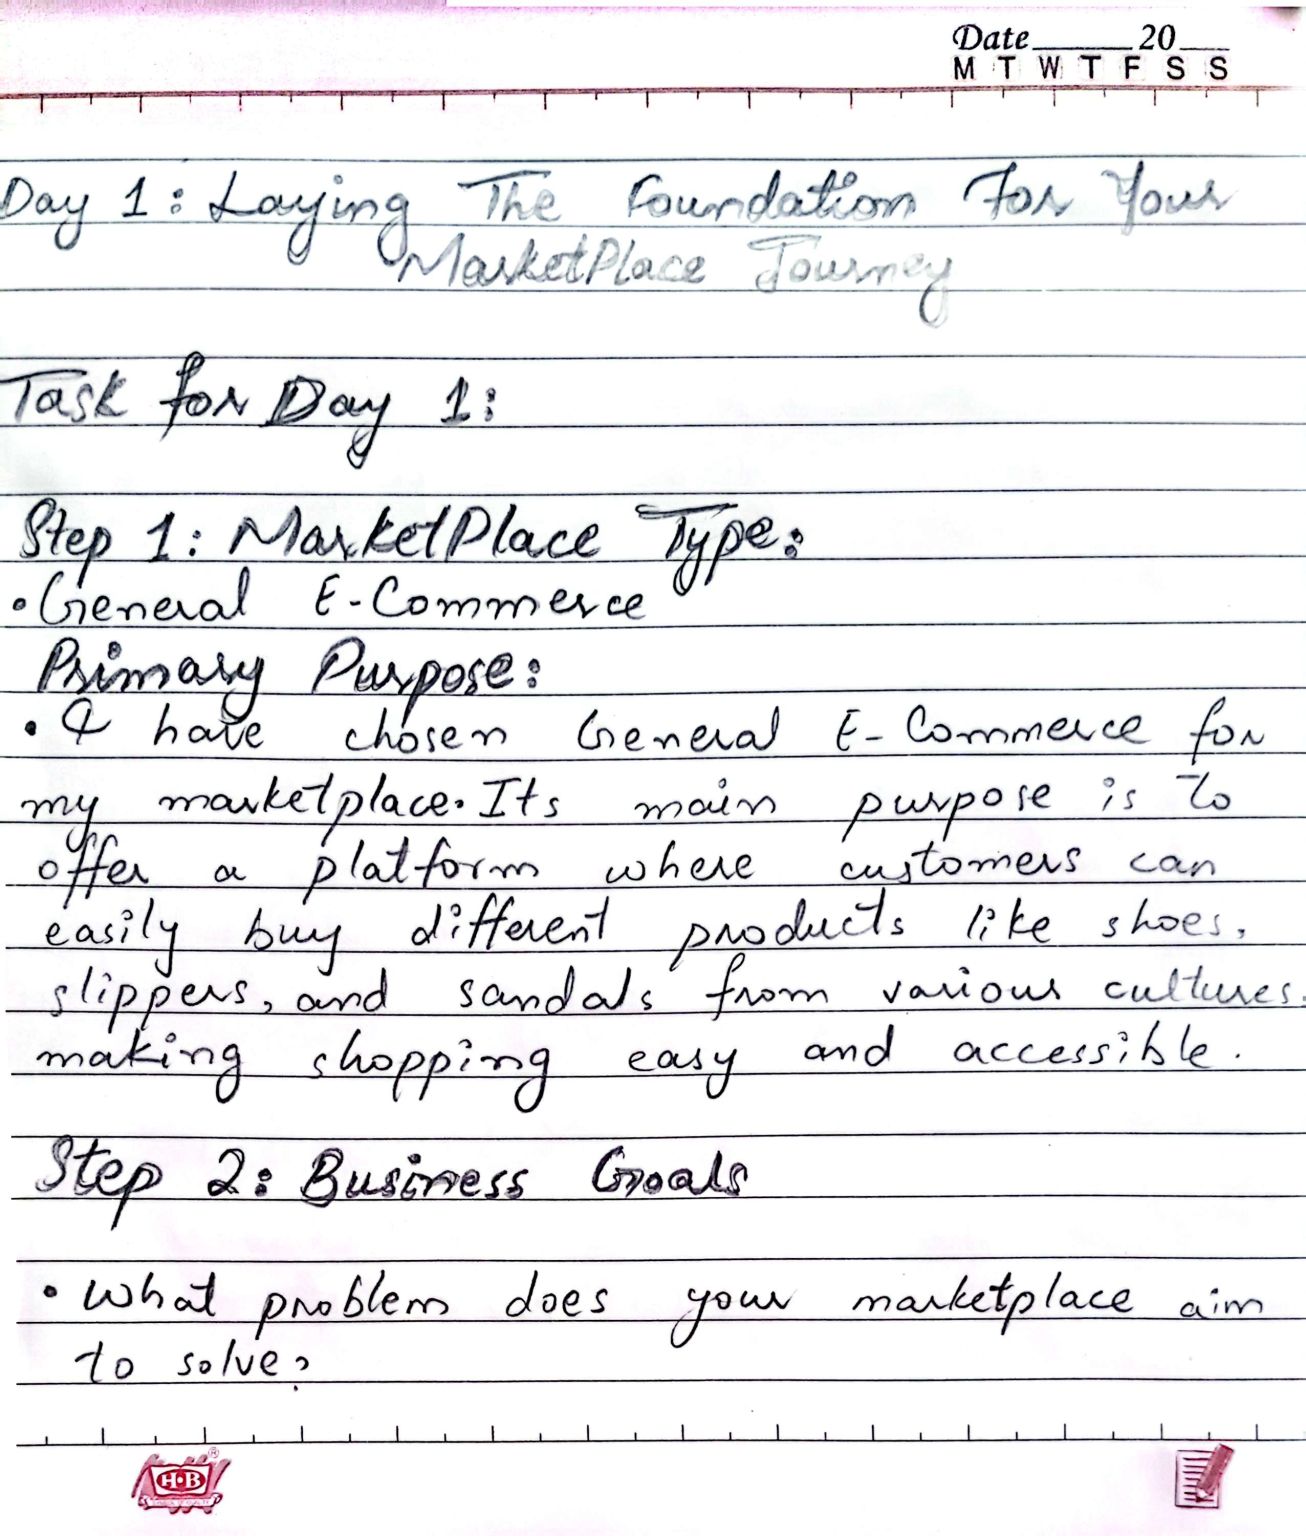 Date 20
M T W T F S S
Day 1: Laying The Foundation For Your
MarketPlace Journey
Task for Day 1:
Step 1: MarketPlace Type:
• General E-Commerce
Primary Purpose:
• I have chosen General E-Commerce for
my marketplace. Its main purpose is to
offer a platform where customers can
easily buy different products like shoes,
slippers, and sandals from various cultures.
making shopping easy and accessible.
Step 2: Business Goals
• What problem does your marketplace aim
to solve?
H·B